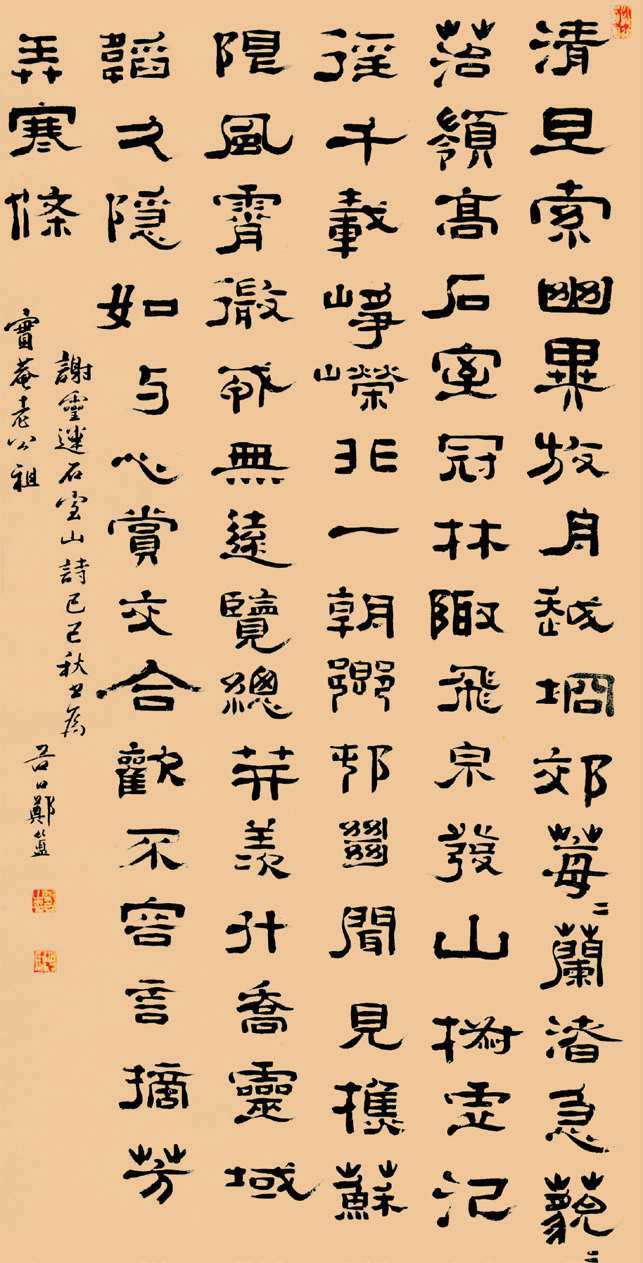 清旦索幽異放舟越坰郊莓〻蘭渚急藐〻
苔嶺高石室冠林陬飛泉發山椒虛泛
徑千載崢嶸非一朝鄉邨絕聞見樵蘇
限風霄微戎無遠覽總笄羨升喬靈域
韜久隱如与心賞交合歡不容言摘芳
弄寒條
謝靈運石室山詩己巳秋書為
實菴老公祖
谷口鄭簠